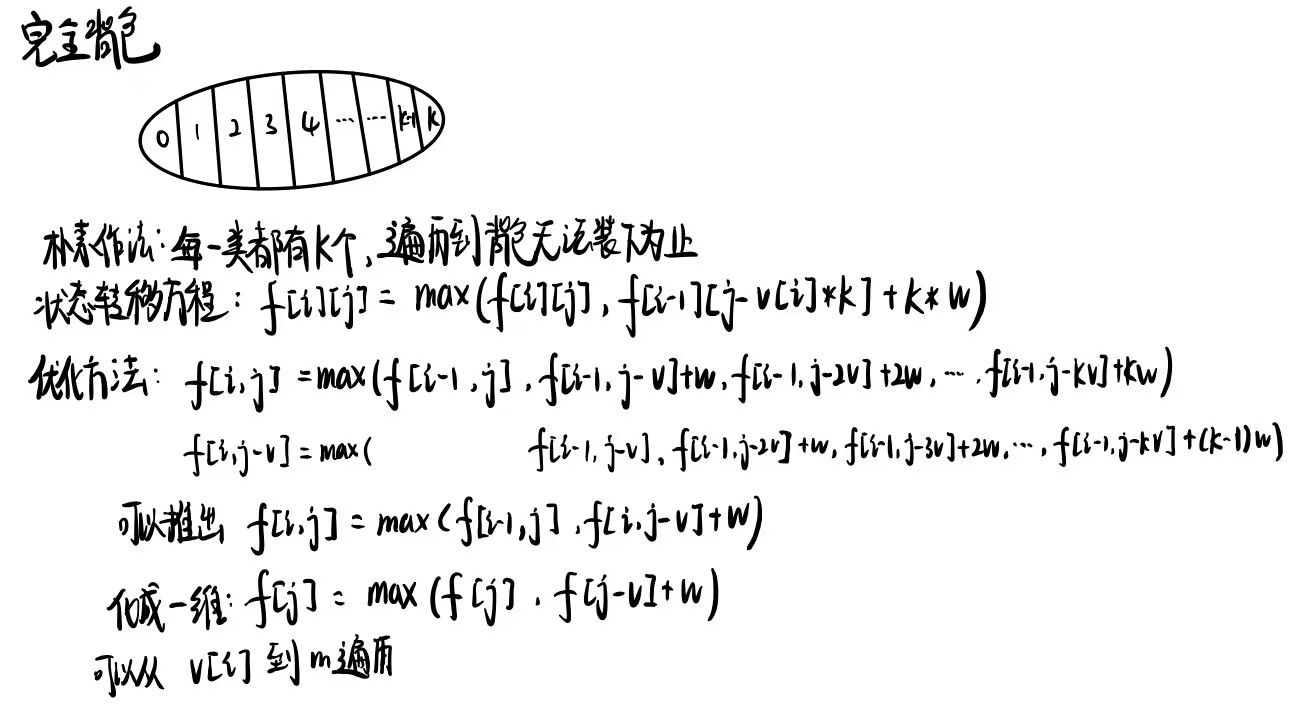 完全背包
0 1 2 3 4 ... ... k-1 k
朴素作法：每一类都有k个，遍历到背包无法装下为止
状态转移方程：f[i][j] = max(f[i][j], f[i-1][j-v[i]*k]+k*w)
优化方法：f[i,j] = max(f[i-1,j], f[i-1,j-v]+w, f[i-1,j-2v]+2w, ... , f[i-1,j-kv]+kw)
f[i,j-v] = max( f[i-1,j-v], f[i-1,j-2v]+w, f[i-1,j-3v]+2w, ... , f[i-1,j-kv]+(k-1)w)
可以推出 f[i,j] = max(f[i-1,j], f[i,j-v]+w)
化成一维：f[j] = max(f[j], f[j-v]+w)
可以从 v[i] 到 m遍历